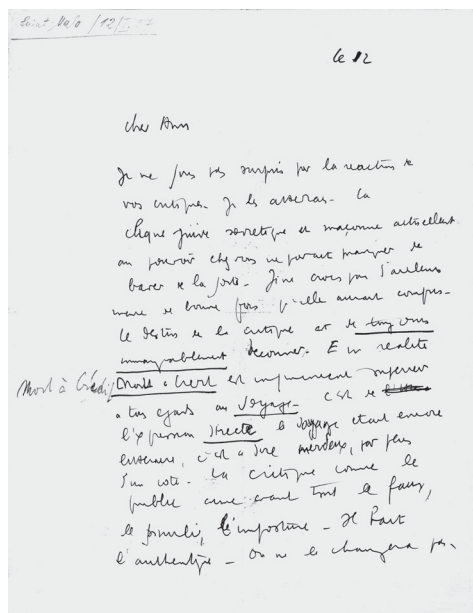 Saint-Malo / 12/
le 12
cher Ami
Je ne suis pas surpris par la reaction de
vos critiques. Je les attendais. La
clique juive sovietique et maçonne actuellement
au pouvoir chez vous ne pouvait manquer de
baver de la sorte. Je ne crois pas d'ailleurs
meme de bonne fois qu'elle aurait compris.
Le destin de la critique est de toujours
immanquablement deconner. En realité
Mort à Crédit Mort à Credit est infiniment superieur
a tous egards au Voyage. c'est de
l'expression directe le Voyage etant encore
litteraire, c'est a dire merdeux, par plus
d'un coté. La critique comme le
public aime avant tout le faux,
le simili, l'imposture. Il hait
l'authentique. On ne le changera pas.